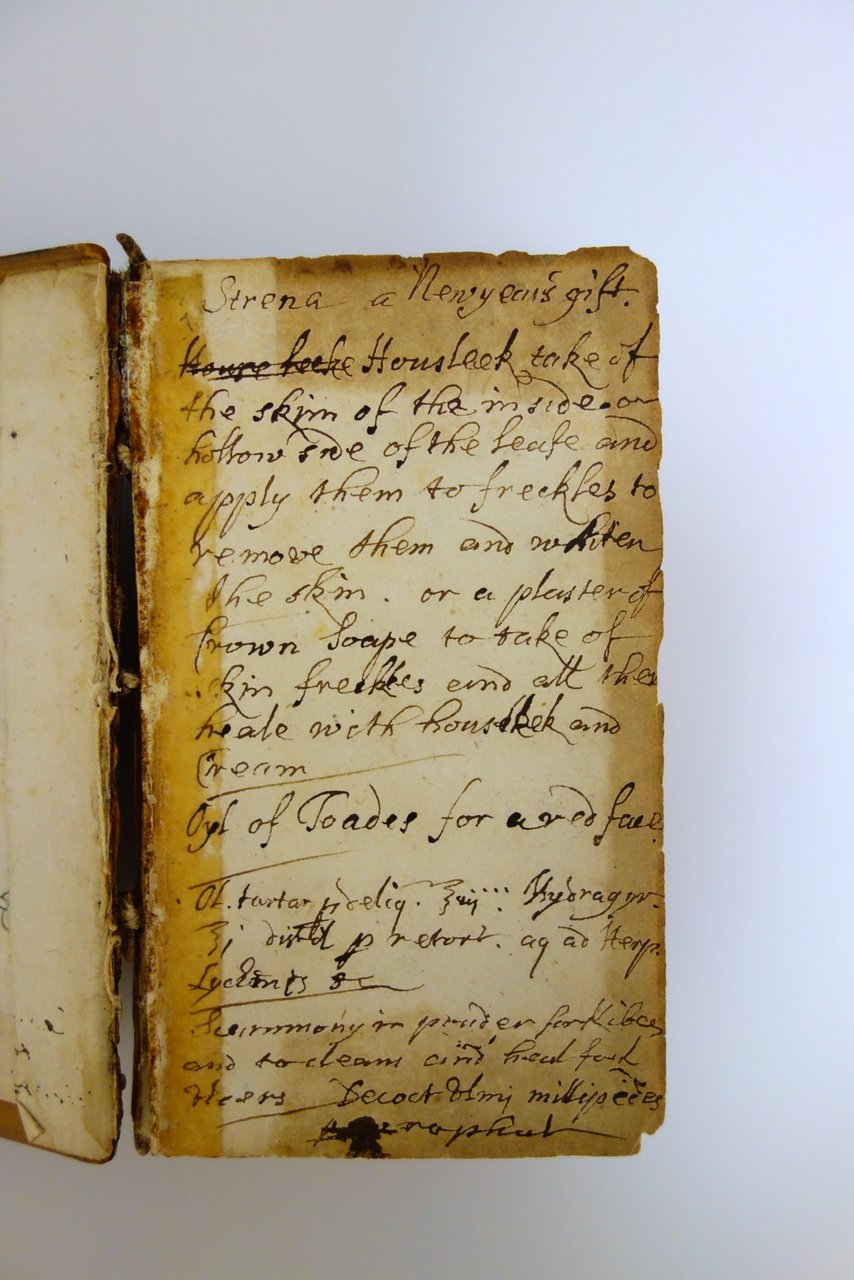 Strena a Newyears gift.
House leeke Housleek take of
the skin of the inside or
hollow side of the leafe and
apply them to freckles to
remove them and whiten
the skin. or a plaster of
Crown Soape to take of
skin freckles and all then
heale with housleek and
Cream
Oyl of Toades for a red face
Ol. tartar p deliq. Hydragyr.
ʒj distld p retort. aq ad Herp.
&c
Scammony in pouder for Kibes
and to cleans and heal foul
Ulcers Decoct Ulmj millipedes